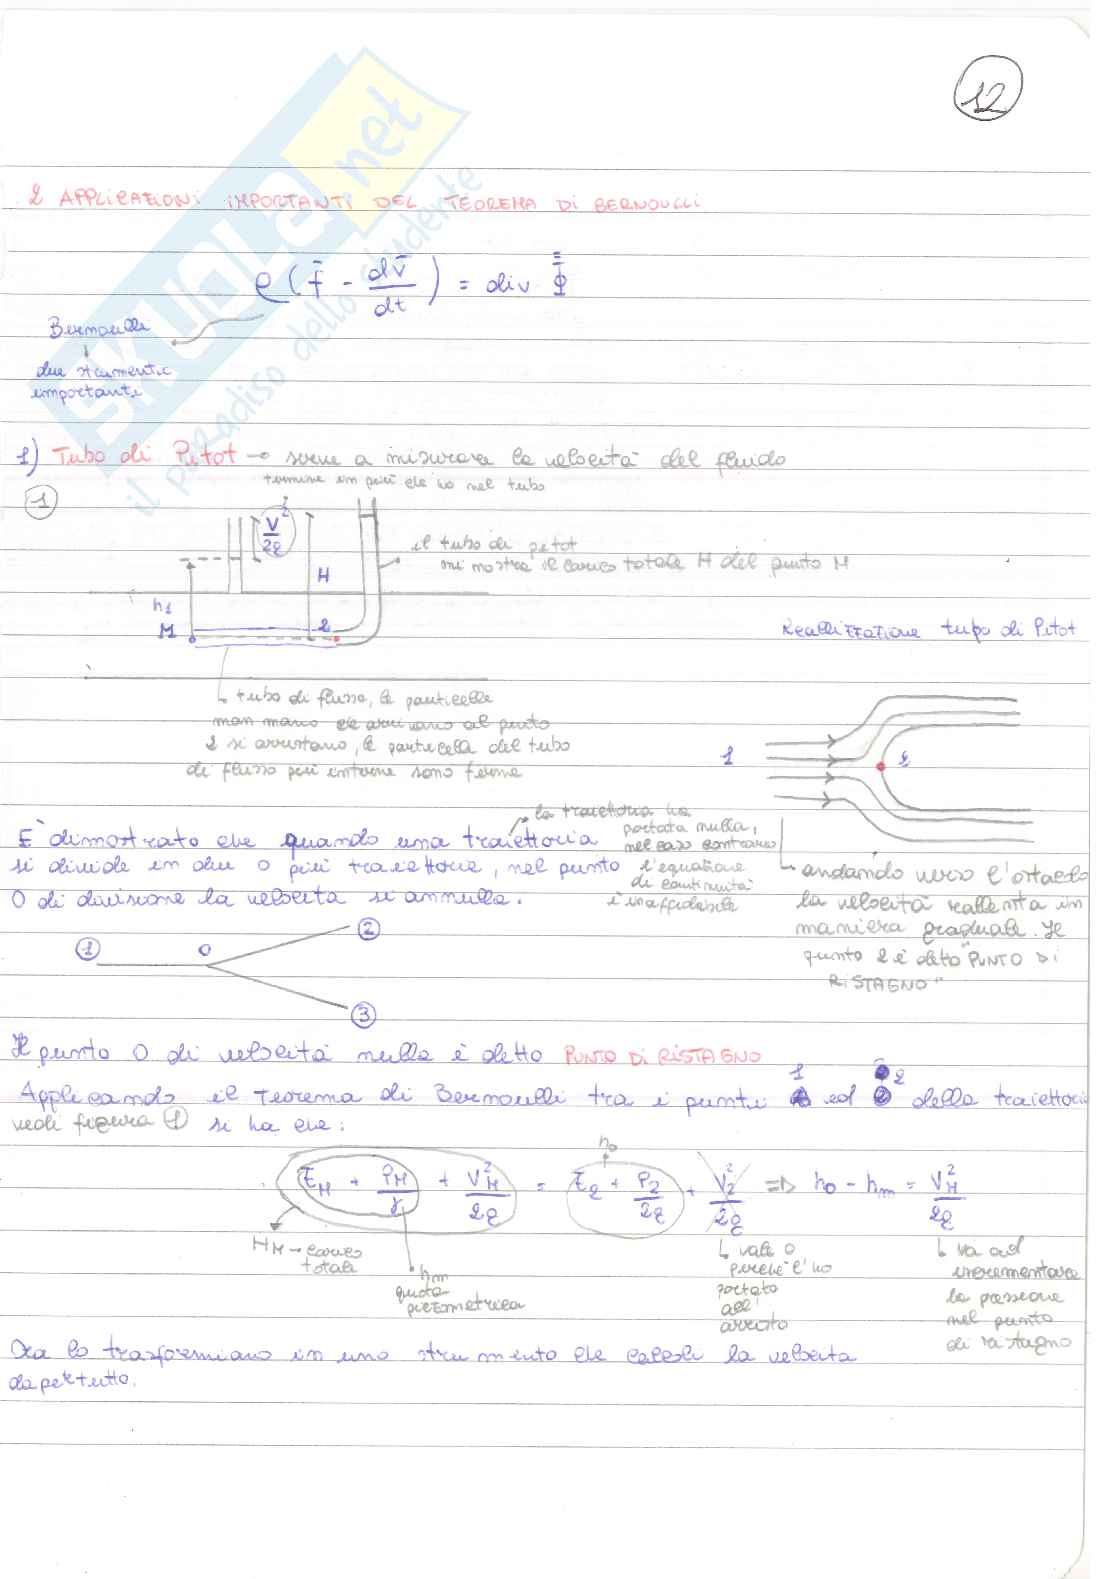 12
2 APPLICAZIONI IMPORTANTI DEL TEOREMA DI BERNOULLI
ρ ( f̄ - dv̄/dt ) = div Φ̿
Bernoulli
due strumenti
importanti
1) Tubo di Pitot → serve a misurare la velocità del fluido
termine in più che ho nel tubo
1
V²/2g
il tubo di pitot
mi mostra il carico totale H del punto M
H
h1
M
2
Realizzazione tubo di Pitot
tubo di flusso, le particelle
man mano che arrivano al punto
2 si arrestano, le particelle del tubo
di flusso più interne sono ferme
1
2
la traiettoria ha
portata nulla,
nel caso contrario
l'equazione
di continuità
è inaffidabile
E' dimostrato che quando una traiettoria
si divide in due o più traiettorie, nel punto
O di divisione la velocità si annulla.
andando verso l'ostacolo
la velocità rallenta in
maniera graduale. Il
punto 2 è detto "PUNTO DI
RISTAGNO"
1
O
2
3
Il punto O di velocità nulla è detto PUNTO DI RISTAGNO
1
2
Applicando il teorema di Bernoulli tra i punti ed della traiettoria
vedi figura 1 si ha che:
h0
zM + PM/γ + VM²/2g = z2 + P2/2g + V2²/2g ⇒ h0 - hm = VM²/2g
HM → carico
totale
hm
quota
piezometrica
vale 0
perché l'ho
portato
all'
arresto
va ad
incrementare
la pressione
nel punto
di ristagno
Ora lo trasformiamo in uno strumento che calcoli la velocità
dapertutto.
SKUOLA.net
il paradiso dello studente